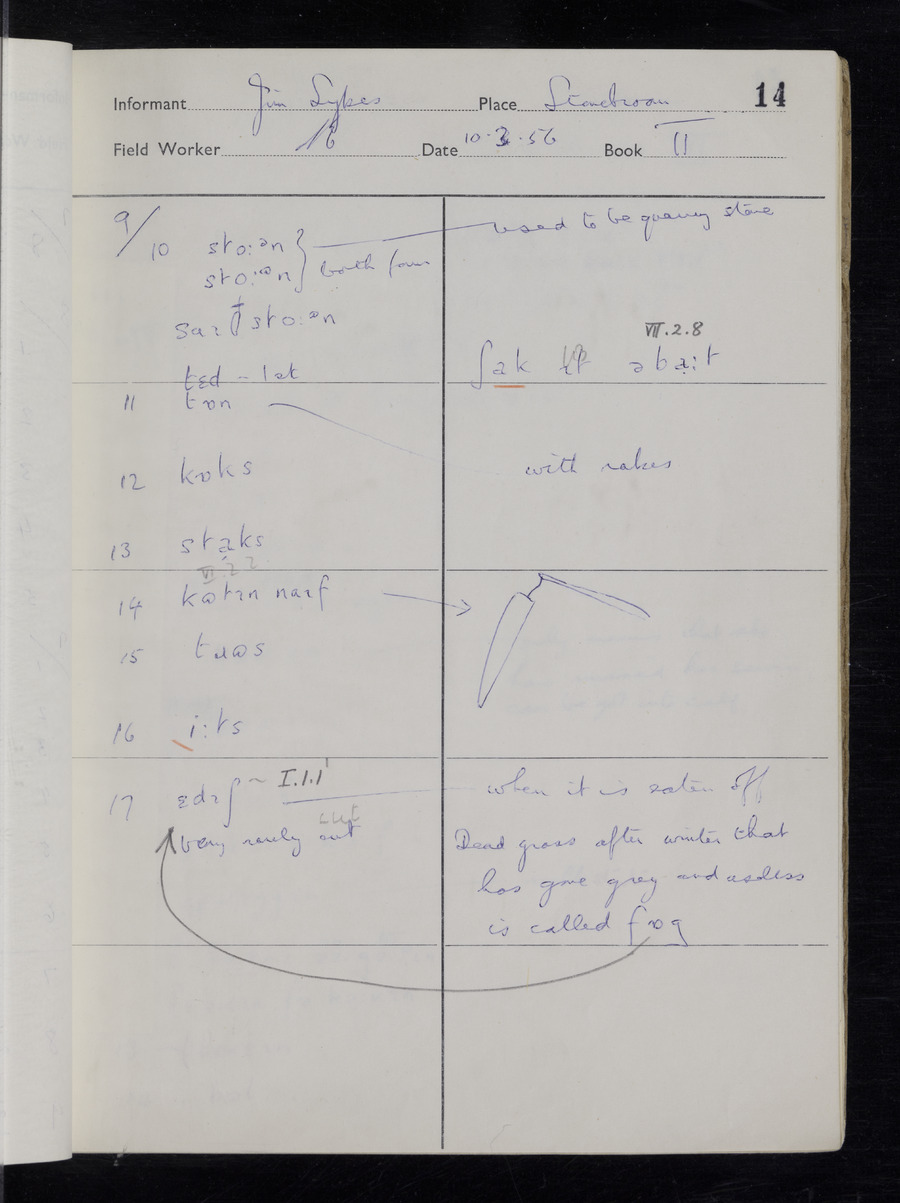 Informant Jim Sykes Place Stonebroom 14
Field Worker Date 10·3·56 Book II
9/
10 stoːᵊn } used to be quarry stone
stoːᵊn both
stoːᵊn
VII.2.8
tɛd - lət
ʃak ɪt əbaːt
11 tɒn with rakes
12 kɒks
13 staks
VI 2 2
14 naɪf
15
16 iːts
17 ɛdɪʃ ~ I.1.1 when it is eaten off
very rarely cut Dead grass after winter that
has gone grey and useless
is called fɒg